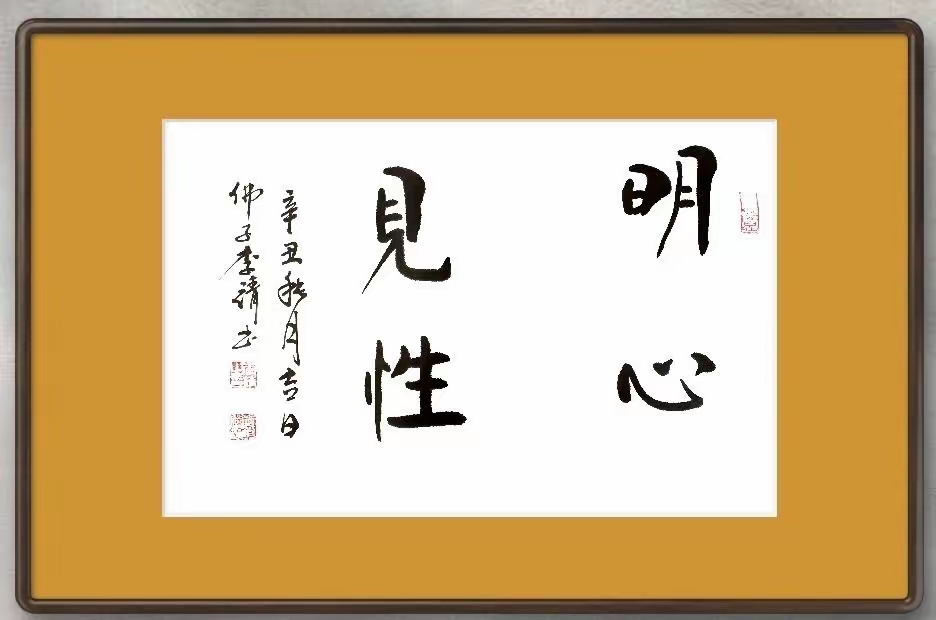 明心
見性
辛丑秋月吉日
佛子李靖书